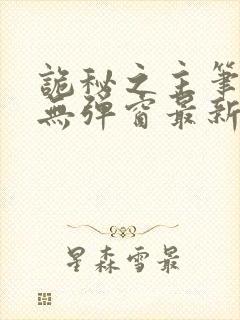 詭秘之主筆
無彈窗最新
星森雪最